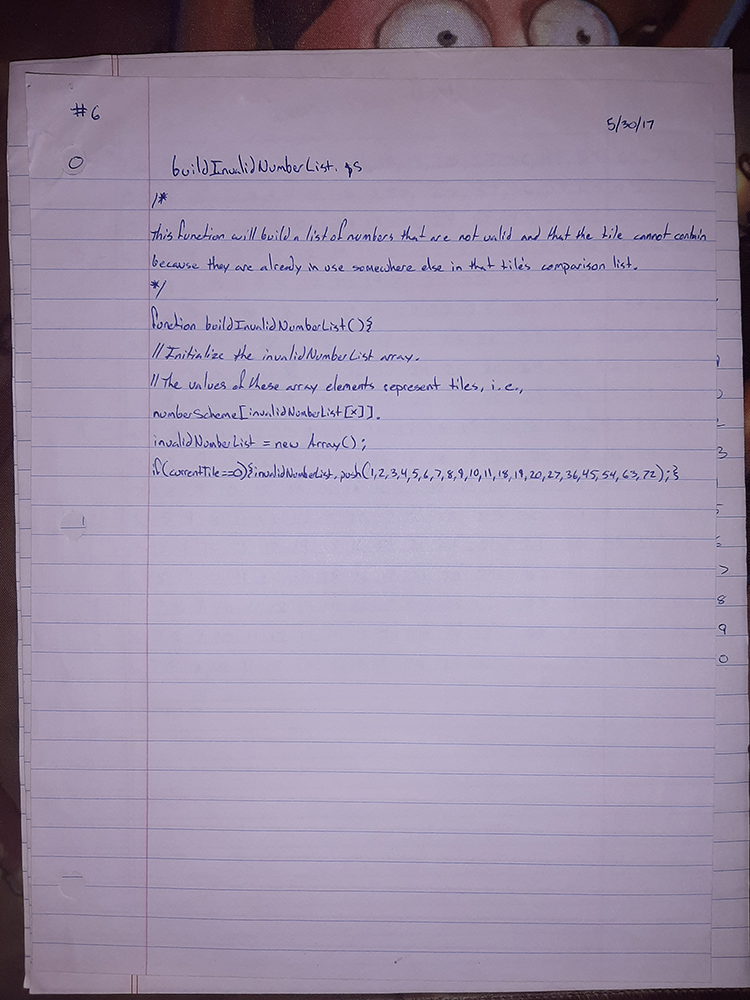 #6
5/30/17
buildInvalidNumberList.js
/*
This function will build a list of numbers that are not valid and that the tile cannot contain
because they are already in use somewhere else in that tile's comparison list.
*/
function buildInvalidNumberList(){
//Initialize the invalidNumberList array.
//The values of these array elements represent tiles, i.e.,
numberScheme[invalidNumberList[x]].
invalidNumberList = new Array();
if(currentTile==0){invalidNumberList.push(1,2,3,4,5,6,7,8,9,10,11,18,19,20,27,36,45,54,63,72);}
3
7
8
9
0